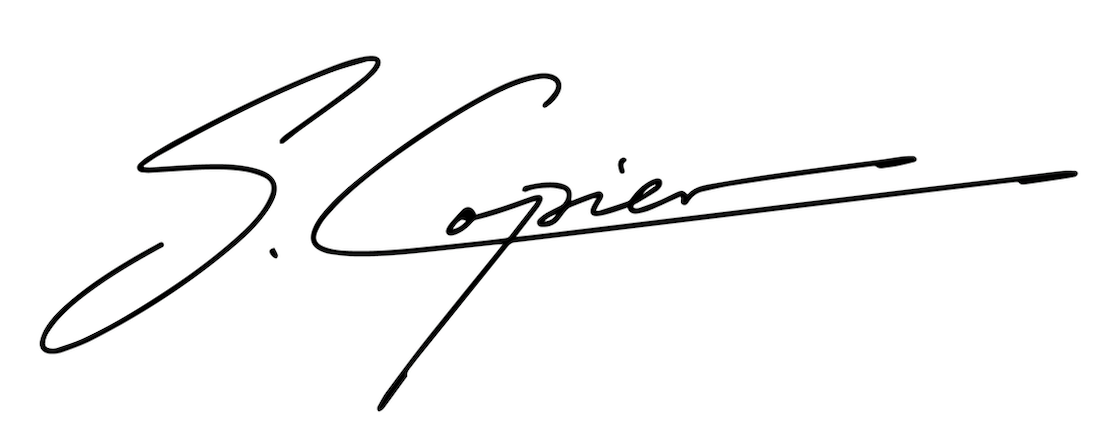 S. Copier